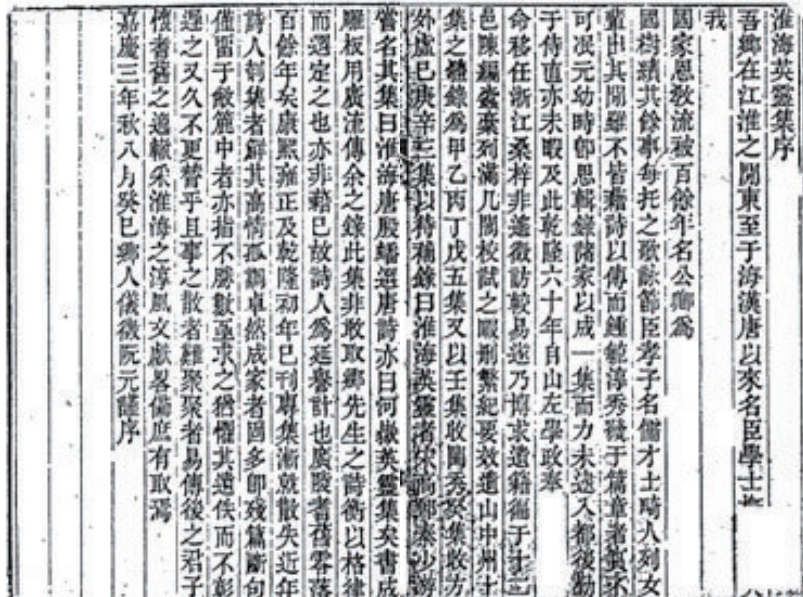 淮海英靈集序
吾鄉在江淮之閒東至于海漢唐以來名臣學士
我
國家恩敎流被百餘年名公卿爲
國樹績其餘事每托之歌詠節臣孝子名儒才士畸人列女
輩出其閒雖不皆藉詩以傳而鍾毓淳秀發于篇章者實不
可沒元幼時卽思輯錄諸家以成一集而力未逮入都後勤
于侍直亦未暇及此乾隆六十年自山左學政奉
命移任浙江桑梓非遙徵訪較易遂乃博求遺籍徧于十二
邑陳編蠹稾列滿几閒校試之暇刪繁紀要效遺山中州十
集之體錄爲甲乙丙丁戊五集又以壬集收閨秀癸集收方
外虛己庚辛三集以待補錄曰淮海英靈者宋高郵秦少游
嘗名其集曰淮海唐殷璠選唐詩亦曰河嶽英靈集矣書成
雕板用廣流傳余之錄此集非敢取鄉先生之詩衡以格律
而選定之也亦非藉已故詩人爲延譽計也廣陵耆舊零落
百餘年矣康熙雍正及乾隆初年已刊專集漸就散失近年
詩人刻集者鮮其高情孤調卓然成家者固多卽殘篇斷句
僅留于敝簏中者亦指不勝數亟求之猶懼其遺佚而不彰
遲之又久不更替乎且事之散者難聚聚者易傳後之君子
懷耆舊之逸轍采淮海之淳風文獻畧備庶有取焉
嘉慶三年秋八月癸巳鄉人儀徵阮元謹序